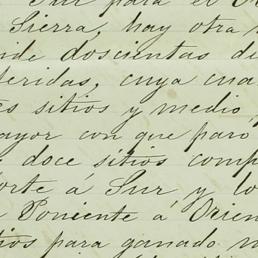 Sur para el
Sierra, hay otra
doscientas
feridas, cuya
sitios y medio
ayor con que paró
doce sitios
orte á Sur y lo
Poniente á Orien
ios para ganado